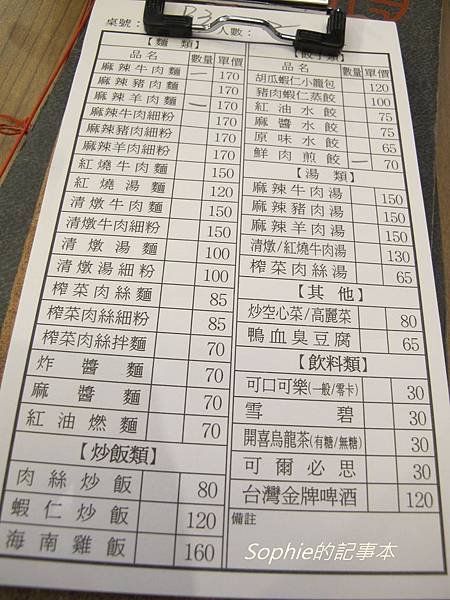 桌號： 人數：
【麵類】
品名 數量 單價
麻辣牛肉麵 一 170
麻辣豬肉麵 170
麻辣羊肉麵 一 170
麻辣牛肉細粉 170
麻辣豬肉細粉 170
麻辣羊肉細粉 170
紅燒牛肉麵 150
紅燒湯麵 120
清燉牛肉麵 150
清燉牛肉細粉 150
清燉湯麵 100
清燉湯細粉 100
榨菜肉絲麵 85
榨菜肉絲細粉 85
榨菜肉絲拌麵 70
炸醬麵 70
麻醬麵 70
紅油燃麵 70
【炒飯類】
肉絲炒飯 80
蝦仁炒飯 120
海南雞飯 160
品名 數量 單價
胡瓜蝦仁小籠包 120
豬肉蝦仁蒸餃 100
紅油水餃 75
麻醬水餃 75
原味水餃 65
鮮肉煎餃 一 70
【湯類】
麻辣牛肉湯 150
麻辣豬肉湯 150
麻辣羊肉湯 150
清燉/紅燒牛肉湯 130
榨菜肉絲湯 65
【其他】
炒空心菜/高麗菜 80
鴨血臭豆腐 65
【飲料類】
可口可樂(一般/零卡) 30
雪碧 30
開喜烏龍茶(有糖/無糖) 30
可爾必思 30
台灣金牌啤酒 120
備註
Sophie的記事本